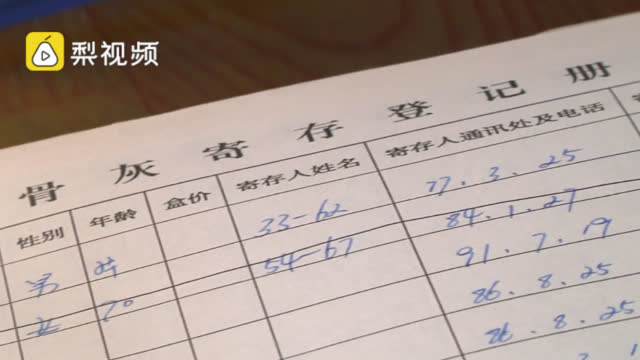 梨视频
骨灰寄存登记册
性别 年龄 盒价 寄存人姓名 寄存人通讯处及电话
男 33-62 77.3.25
女 70 54-67 84.1.27
91.7.19
86.8.25
86.8.25